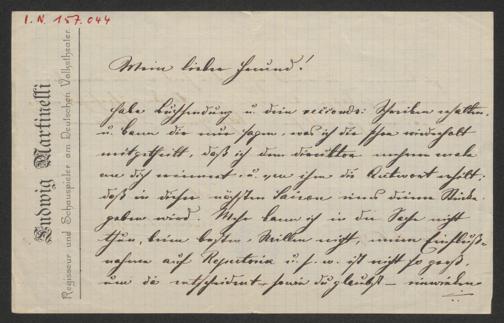 I. N. 157.044
Ludwig Martinelli
Regisseur und Schauspieler am Deutschen Volkstheater.
Mein lieber Freund!
habe Buchsendung u. dein recomds. Schreiben erhalten,
u. kann dir nur sagen, was ich dir schon wiederholt
mitgetheilt, daß ich den Direktor mehrere male
an dich erinnert u. von ihm die Antwort erhielt:
daß er in dieser nächsten Saison eines deiner Stücke
geben wird. Mehr kann ich in der Sache nicht
thun, beim besten Willen nicht, meine Einfluß-
nahme auf Repertoir u. s. w. ist nicht so groß,
um da entscheidend – wie du glaubst – einwirken